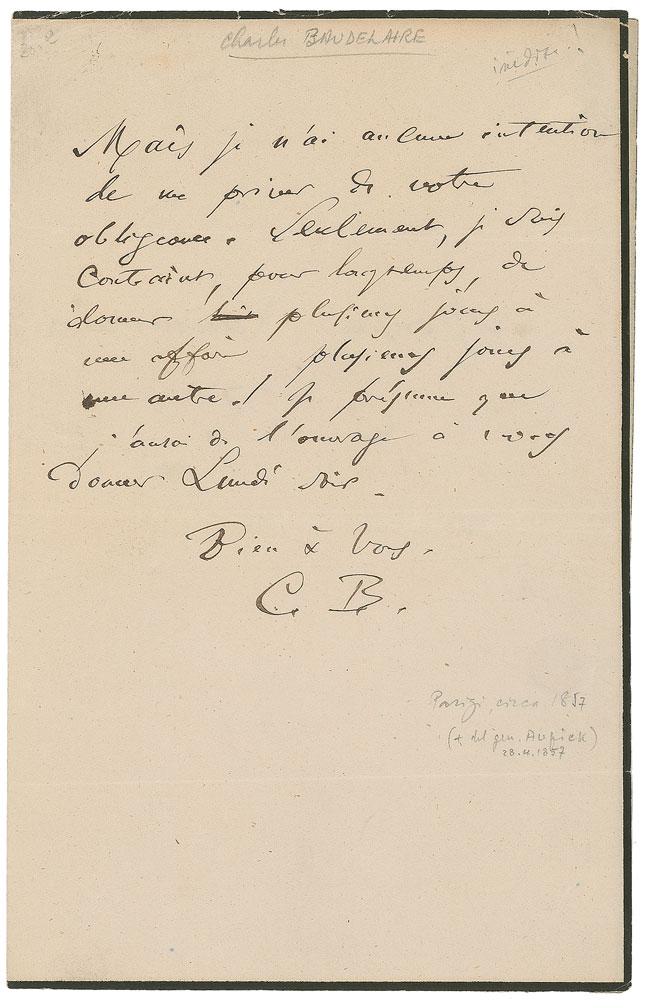 Charles BAUDELAIRE
inédite!
Mais je n'ai aucune intention
de me priver de votre
obligeance. Seulement, je suis
contraint, pour longtemps, de
donner plusieurs jours à
une affaire, plusieurs jours à
une autre. Je présume que
j'aurai de l'ouvrage à vous
donner Lundi soir.
Bien à Vous.
C. B.
Parigi, circa 1857
(+ del gen. Aupick)
28.4.1857